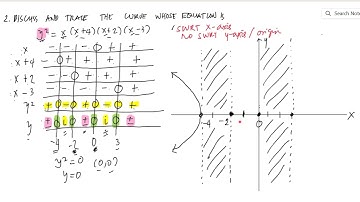 2. DISCUSS AND TRACE THE CURVE WHOSE EQUATION IS
y² = x (x+4)(x+2)(x-3)
SWRT X-axis
NO SWRT y-axis / origin
x - - - 0 + +
x+4 - 0 + + + +
x+2 - - 0 + + +
x-3
y² + 0 - 0 + 0 - 0 +
y ± 0 i 0 ± 0 i 0 ±
-4 -2 0 3
y² = 0 (0,0)
y = 0
-4 -2 0 3 X
Notes
Search